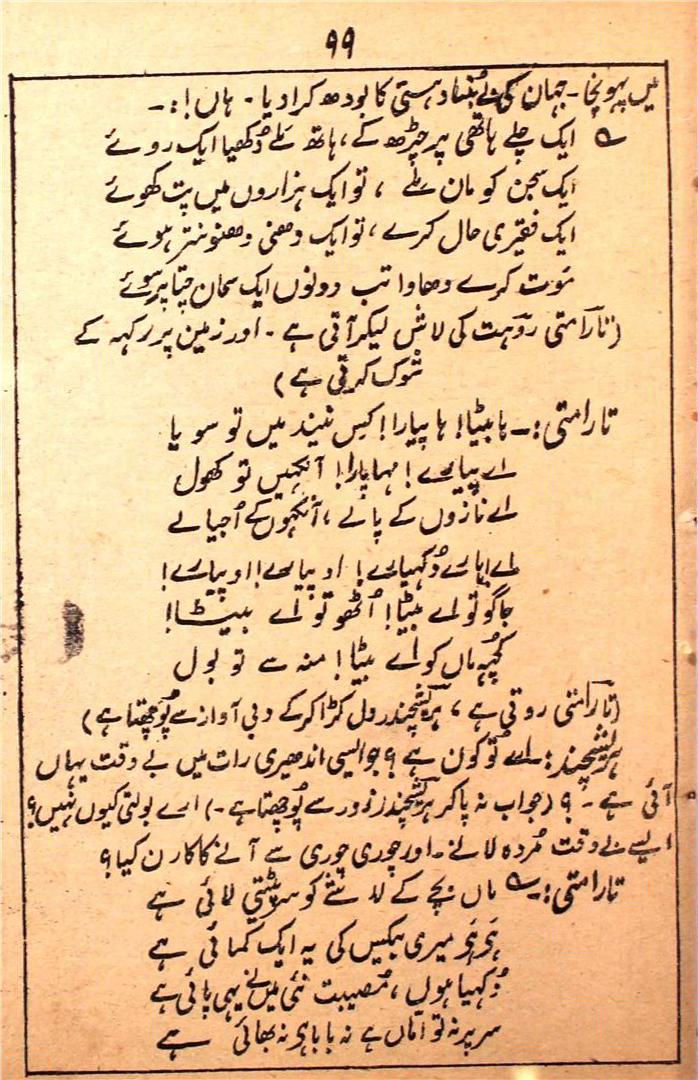 ۹۹
میں پہونچا۔ جہان کی بے بُنیاد ہستی کا بودھ کرا دیا۔ ہاں!:۔
؎ ایک چلے ہاتھی پر چڑھ کے، ہاتھ ملے دُکھیا ایک روئے
ایک سجن کو مان ملے ، تو ایک ہزاروں میں پت کھوئے
ایک فقیری حال کرے، تو ایک دھنی دھنونتر ہوئے
مَوت کرے دھاوا تب دونوں ایک سمان چتا پر سوئے
(تارامتی روہت کی لاش لیکر آتی ہے۔ اور زمین پر رکہہ کے
شوک کرتی ہے)
تارامتی:۔ ہا بیٹا! ہا پیارا! کِس نیند میں تو سویا
اے پیارے! مہا پارا! آنکہیں تو کھول
اے نازوں کے پالے، آنکہوں کے اُجیالے
اے ہمارے دُکہیارے! او پیارے! او پیارے!
جاگو تو اے بیٹا! اُٹھو تو اے بیٹا!
کچہہ ماں کو اے بیٹا! منہ سے تو بول
(تارامتی روتی ہے، ہریشچندر دل کڑا کرکے دبی آواز سے پُوچھتا ہے)
ہریشچندر:۔ اے تُو کون ہے؟ جو ایسی اندھیری رات میں بے وقت یہاں
آئی ہے۔ ؟ (جواب نہ پاکر ہریشچندر زور سے پُوچھتا ہے۔) ارے بولتی کیوں نہیں؟
ایسے بے وقت مُردہ لانے۔ اور چوری چوری سے آنے کا کارن کیا؟
تارامتی:۔ ؎ ماں بچے کے لاشے کو سر پیٹتی لائی ہے
ہَی ہَی میری بیکس کی یہ ایک کمائی ہے
دُکہیا ہوں، مُصیبت نئی میں نے یہی پائی ہے
سر پر نہ تو اماں ہے نہ بابا ہی نہ بھائی ہے